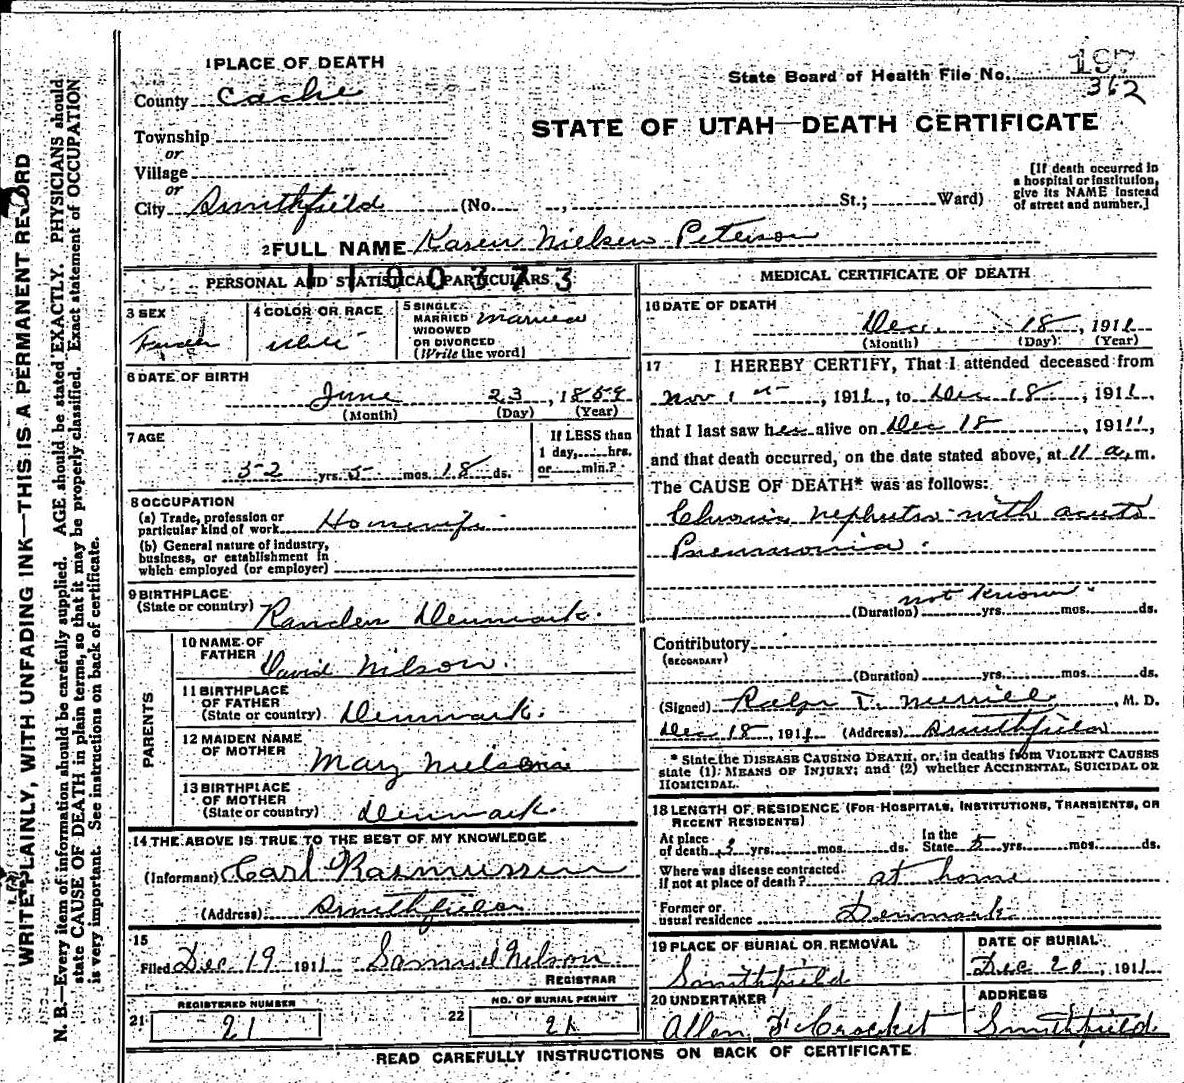 1 PLACE OF DEATH
County Cache
Township
or
Village
or
City Smithfield (No. , St.; Ward)
State Board of Health File No. 197
362
STATE OF UTAH—DEATH CERTIFICATE
[If death occurred in a hospital or institution, give its NAME instead of street and number.]
2 FULL NAME Karen Nielsen Peterson
PERSONAL AND STATISTICAL PARTICULARS
1100373
3 SEX
Female
4 COLOR OR RACE
White
5 SINGLE
MARRIED
WIDOWED
OR DIVORCED
(Write the word)
Married
6 DATE OF BIRTH
June 23, 1859
(Month) (Day) (Year)
7 AGE
52 yrs. 5 mos. 18 ds.
If LESS than
1 day,.....hrs.
or.....min.?
8 OCCUPATION
(a) Trade, profession or
particular kind of work Housewife
(b) General nature of industry,
business, or establishment in
which employed (or employer)
9 BIRTHPLACE
(State or country) Randers Denmark.
PARENTS
10 NAME OF
FATHER David Nilson.
11 BIRTHPLACE
OF FATHER
(State or country) Denmark.
12 MAIDEN NAME
OF MOTHER Mary
13 BIRTHPLACE
OF MOTHER
(State or country) Denmark.
14 THE ABOVE IS TRUE TO THE BEST OF MY KNOWLEDGE
(Informant) Carl Rasmussen
(Address) Smithfield
15
Filed Dec 19 1911 Samuel Nelson
REGISTRAR
REGISTERED NUMBER
21 21
NO. OF BURIAL PERMIT
22 21
MEDICAL CERTIFICATE OF DEATH
16 DATE OF DEATH
Dec. 18, 1911
(Month) (Day) (Year)
17 I HEREBY CERTIFY, That I attended deceased from
Nov 1st, 1911, to Dec 18, 1911,
that I last saw her alive on Dec 18, 1911,
and that death occurred, on the date stated above, at 11 a.m.
The CAUSE OF DEATH* was as follows:
Chronic nephritis with acute
Pneumonia.
not known.
(Duration) yrs. mos. ds.
Contributory
(SECONDARY)
(Duration) yrs. mos. ds.
(Signed) Ralph T. Merrill, M. D.
Dec 18, 1911 (Address) Smithfield
* State the DISEASE CAUSING DEATH, or, in deaths from VIOLENT CAUSES
state (1) MEANS OF INJURY; and (2) whether ACCIDENTAL, SUICIDAL OR
HOMICIDAL.
18 LENGTH OF RESIDENCE (FOR HOSPITALS, INSTITUTIONS, TRANSIENTS, OR
RECENT RESIDENTS)
At place
of death 3 yrs. mos. ds.
In the
State 5 yrs. mos. ds.
Where was disease contracted
if not at place of death? at home
Former or
usual residence Denmark
19 PLACE OF BURIAL OR REMOVAL
Smithfield
DATE OF BURIAL
Dec 20, 1911
20 UNDERTAKER
Allen Crocket
ADDRESS
Smithfield
READ CAREFULLY INSTRUCTIONS ON BACK OF CERTIFICATE
WRITE PLAINLY, WITH UNFADING INK—THIS IS A PERMANENT RECORD
N. B.—Every item of information should be carefully supplied. AGE should be stated EXACTLY. PHYSICIANS should
state CAUSE OF DEATH in plain terms, so that it may be properly classified. Exact statement of OCCUPATION
is very important. See instructions on back of certificate.